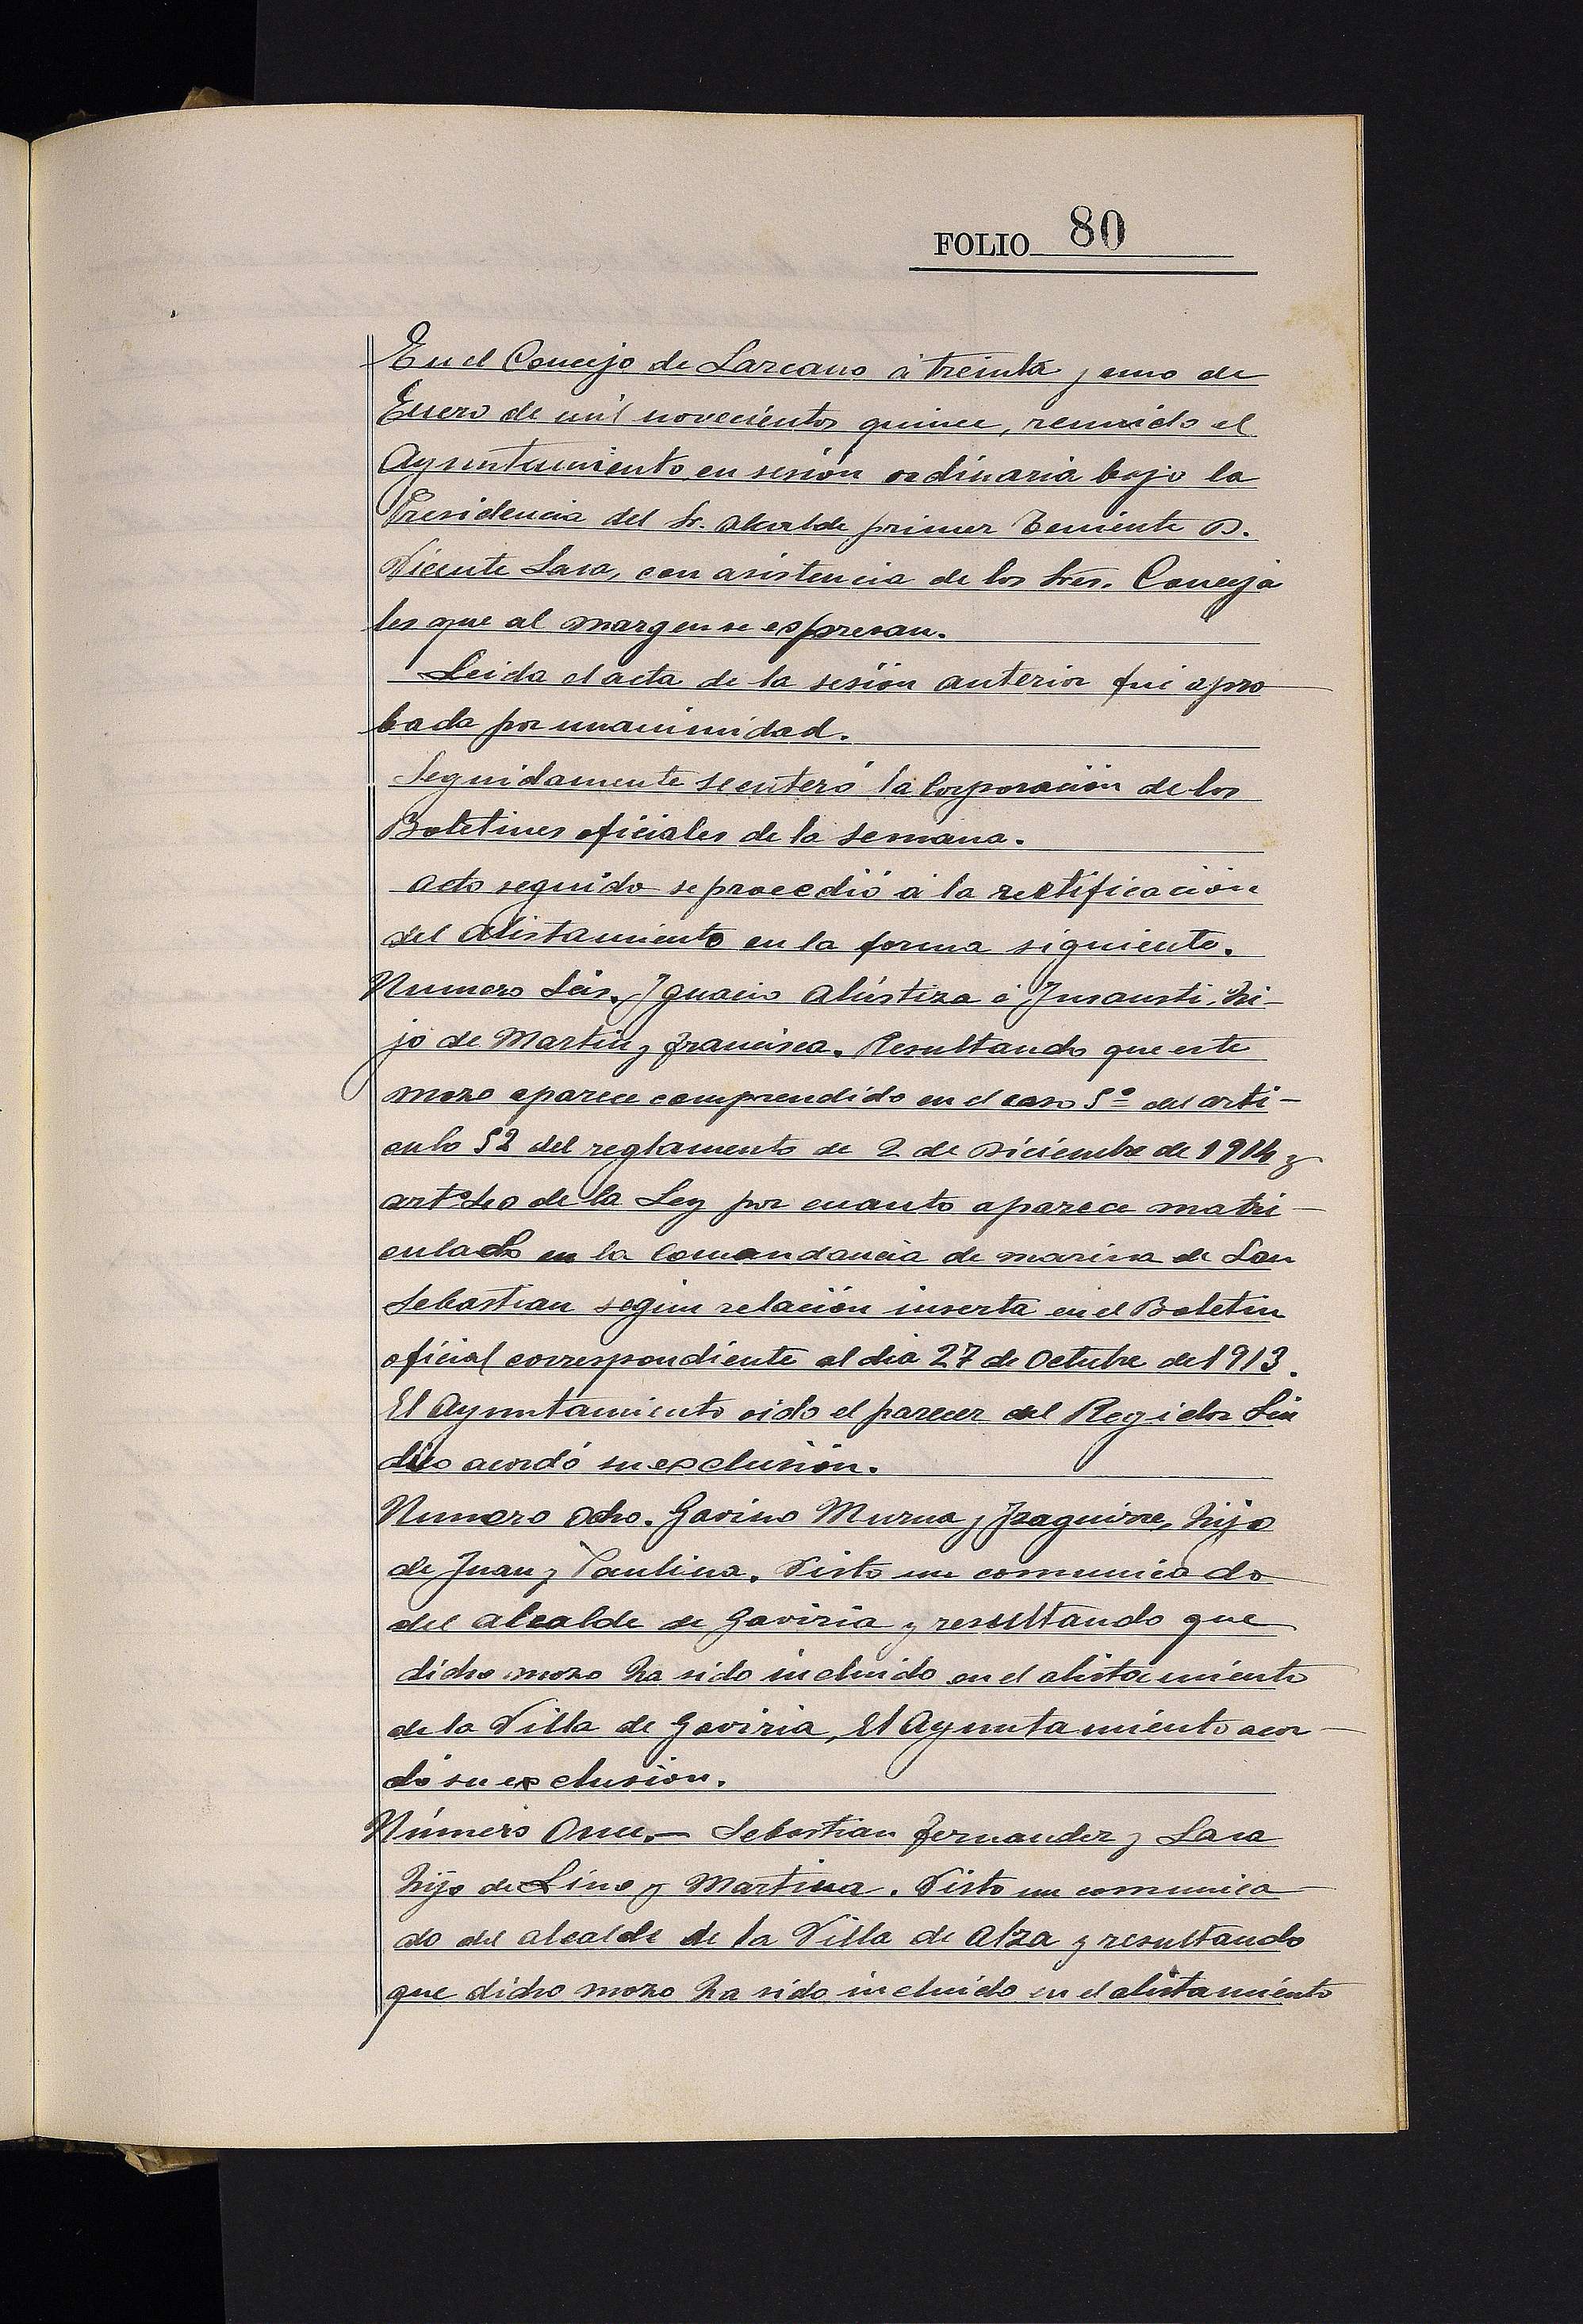 FOLIO 80
En el Concejo de Lazcano á treinta y uno de
Enero de mil novecientos quince, reunido el
Ayuntamiento en sesión ordinaria bajo la
Presidencia del Sr. Alcalde primer Teniente D.
Vicente Lasa, con asistencia de los Sres. Conceja
les que al margen se expresan.
Leida el acta de la sesión anterior fué apro
bada por unanimidad.
Seguidamente se enteró la Corporación de los
Boletines oficiales de la semana.
Acto seguido se procedió á la rectificación
del alistamiento en la forma siguiente.
Numero Seis. Ignacio Aliustiza é Insausti, hi-
jo de Martin y Francisca. Resultando que este
mozo aparece comprendido en el caso 5º del arti-
culo 52 del reglamento de 2 de Diciembre de 1914 y
artº de la Ley por cuanto aparece matri-
culado en la Comandancia de marina de San
Sebastian según relación inserta en el Boletin
oficial correspondiente al dia 27 de Octubre de 1913.
El Ayuntamiento oido el parecer del Regidor Sin
dico acordó su exclusión.
Numero Ocho. Gavino Murua y Izaguirre, hijo
de Juan y Paulina. Visto un comunicado
del alcalde de Gaviria y resultando que
dicho mozo ha sido incluido en el alistamiento
de la Villa de Gaviria, El Ayuntamiento acor-
dó su exclusion.
Número Once.- Sebastian Fernandez y Lasa
hijo de Lino y Martina. Visto un comunica-
do del alcalde de la Villa de Alza y resultando
que dicho mozo ha sido incluido en el alistamiento